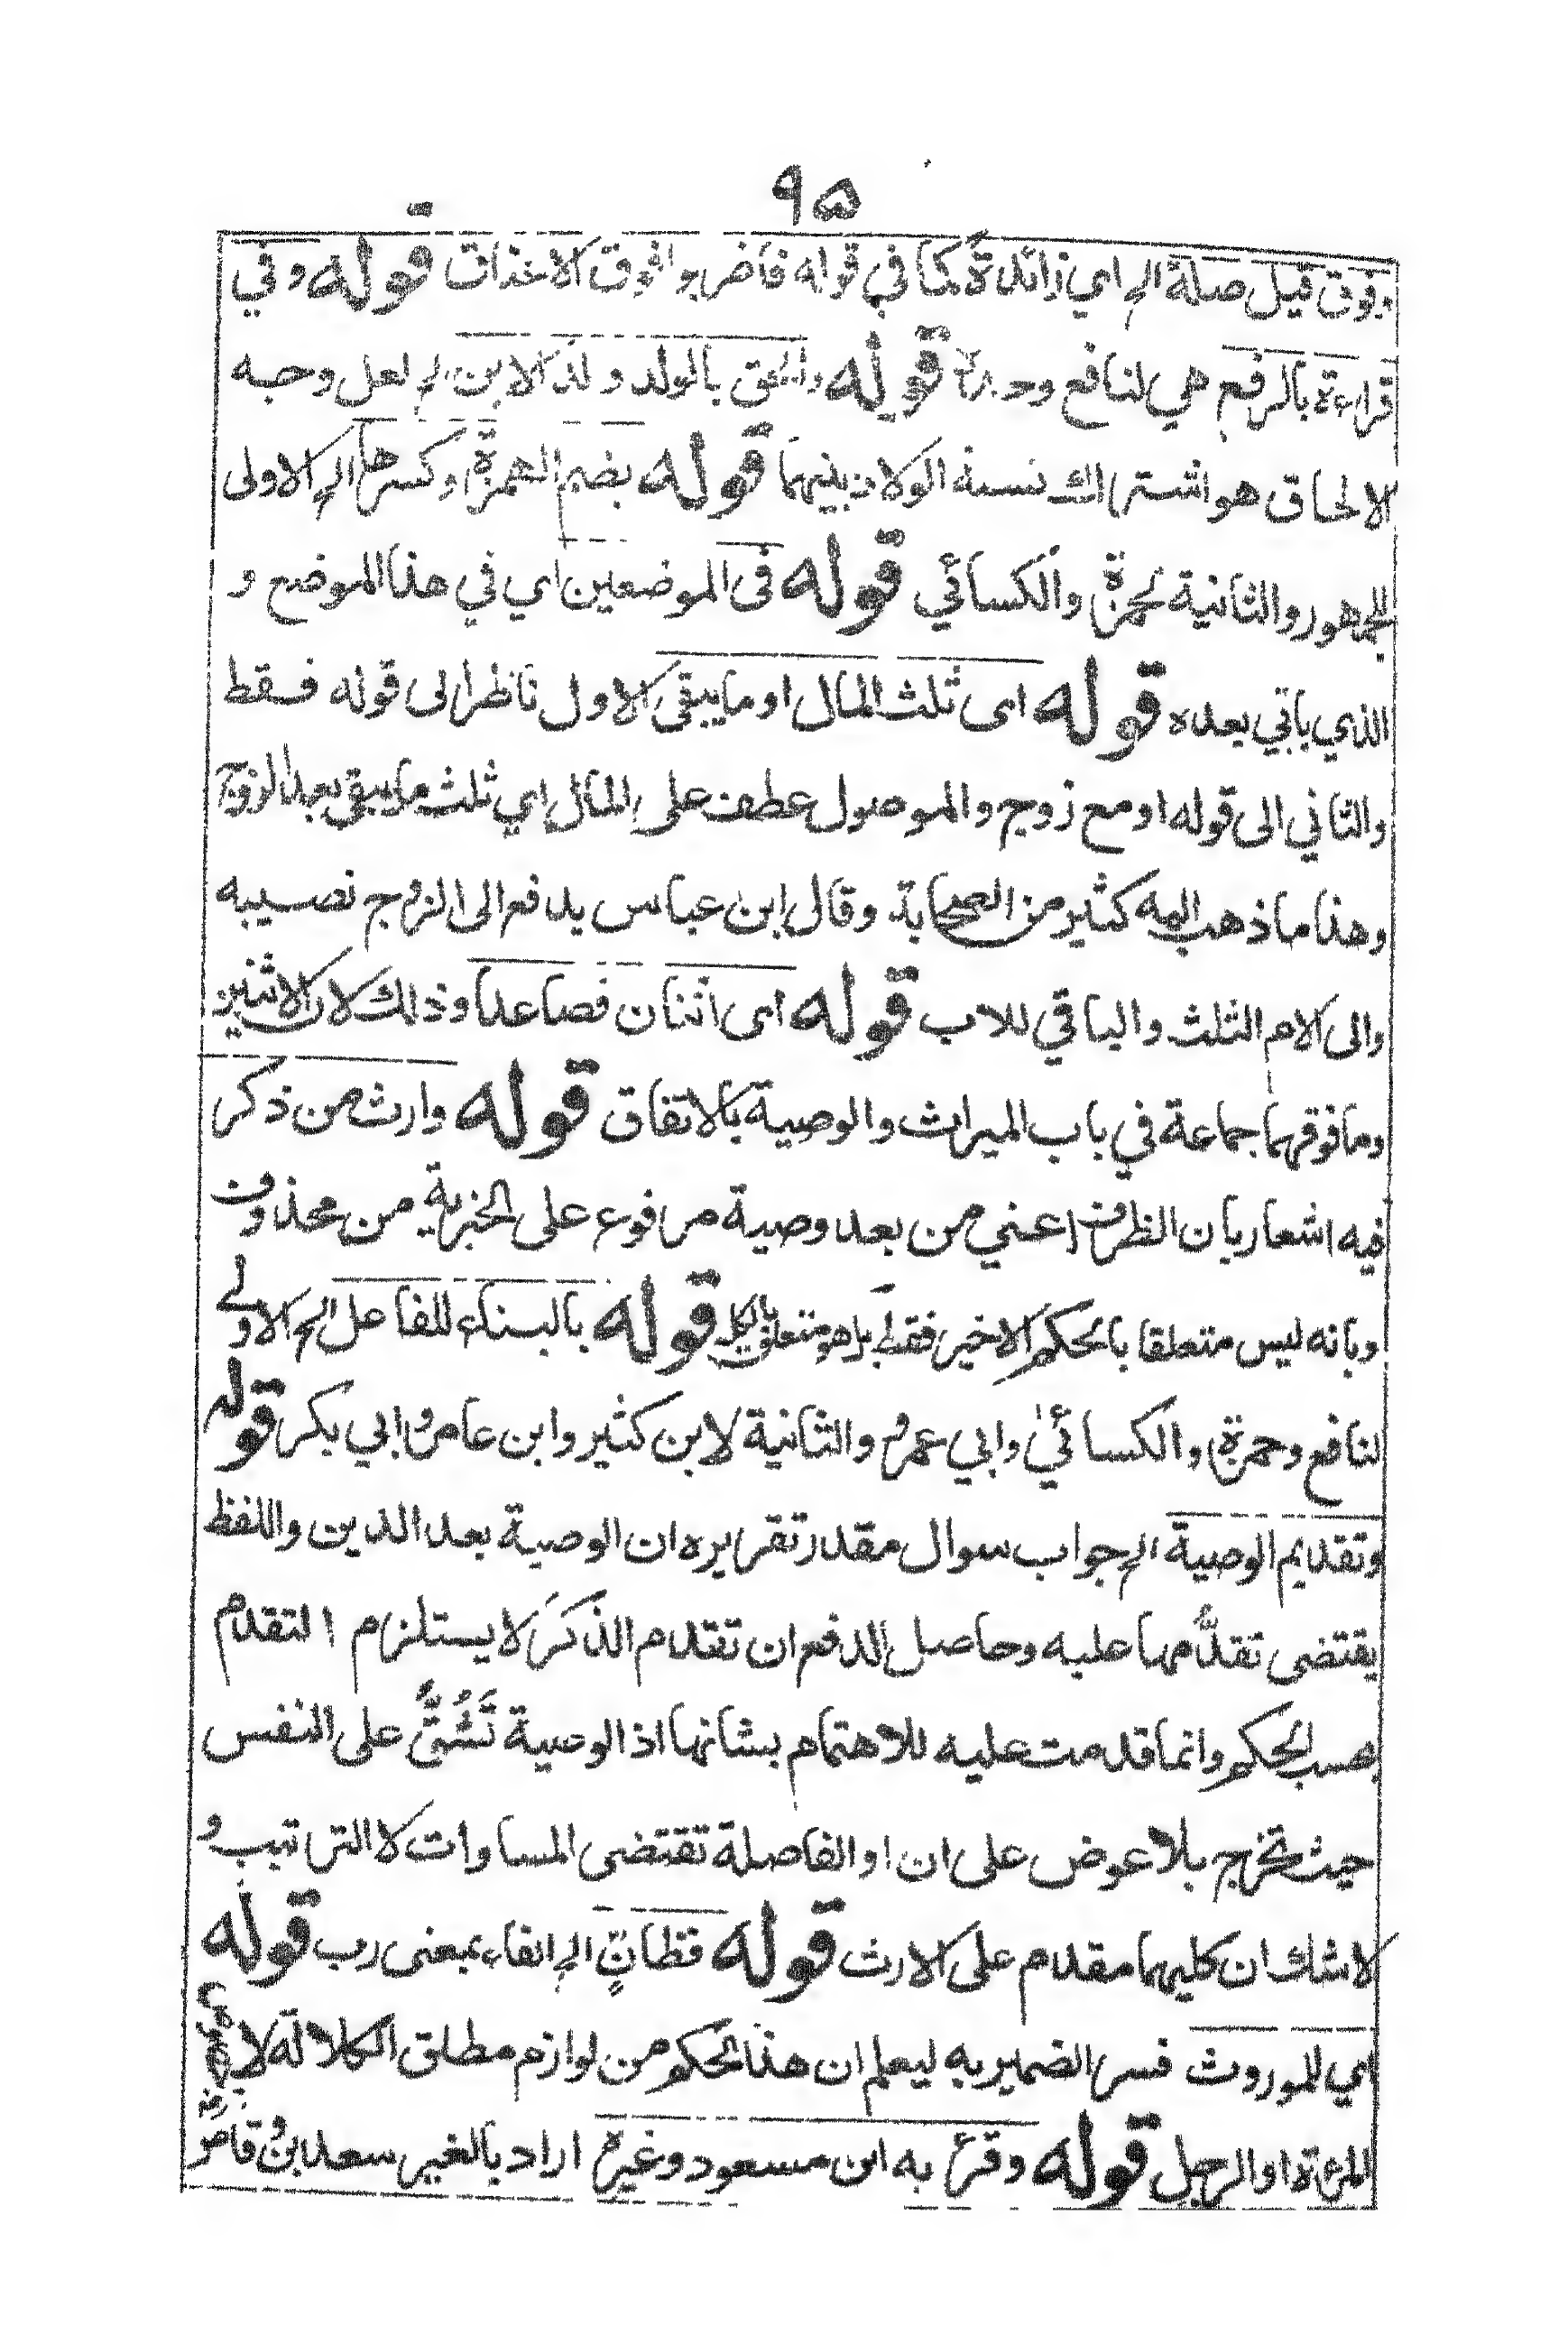 ٩٥
وفوق قيل صلة الخ اي زائدة كما في قوله فاضربوا فوق الاعناق قوله وفي
قراءة بالرفع هي لنافع وحده قوله والحق بالولد ولد الابن الخ لعل وجه
الالحاق هو اشتراك نسبة الولاد بينهما قوله بضم الهمزة وكسرها الخ الاولى
للجمهور والثانية لحمزة والكسائي قوله فى الموضعين اي في هذا الموضع و
الذي ياتي بعده قوله اى ثلث المال او ما يبقى الاول ناظر الى قوله فقط
والثاني الى قوله او مع زوج والموصول عطف على المال اي ثلث ما يبقى بعد الزوج
وهذا ما ذهب اليه كثير من الصحابة وقال ابن عباس يدفع الى الزوج نصيبه
والى الام الثلث والباقي للاب قوله اى اثنان فصاعدا وذلك لان الاثنين
وما فوقهما جماعة في باب الميراث والوصية بالاتفاق قوله وارث من ذكر
فيه اشعار بان الظرف اعني من بعد وصية مرفوع على الخبرية من محذوف
وبانه ليس متعلقا بالحكم الاخير فقط بل هو متعلق بالكل قوله بالبناء للفاعل الخ الاولى
لنافع وحمزة والكسائي وابي عمرو والثانية لابن كثير وابن عامر وابي بكر قوله
وتقديم الوصية الخ جواب سوال مقدر تقريره ان الوصية بعد الدين واللفظ
يقتضى تقدُّمها عليه وحاصل الدفع ان تقدم الذكر لا يستلزم التقدم
بحسب الحكم وانما قدمت عليه للاهتمام بشانها اذ الوصية تَشُقُّ على النفس
حيث تخرج بلا عوض على ان او الفاصلة تقتضى المساوات لا الترتيب و
لا شك ان كليهما مقدم على الارث قوله قوله
اي للموروث فسر الضمير به ليعلم ان هذا الحكم من لوازم مطلق الكلالة لا
المرءة او الرجل قوله وقرء به ابن مسعود وغيره اراد بالغير سعد بن وقاص